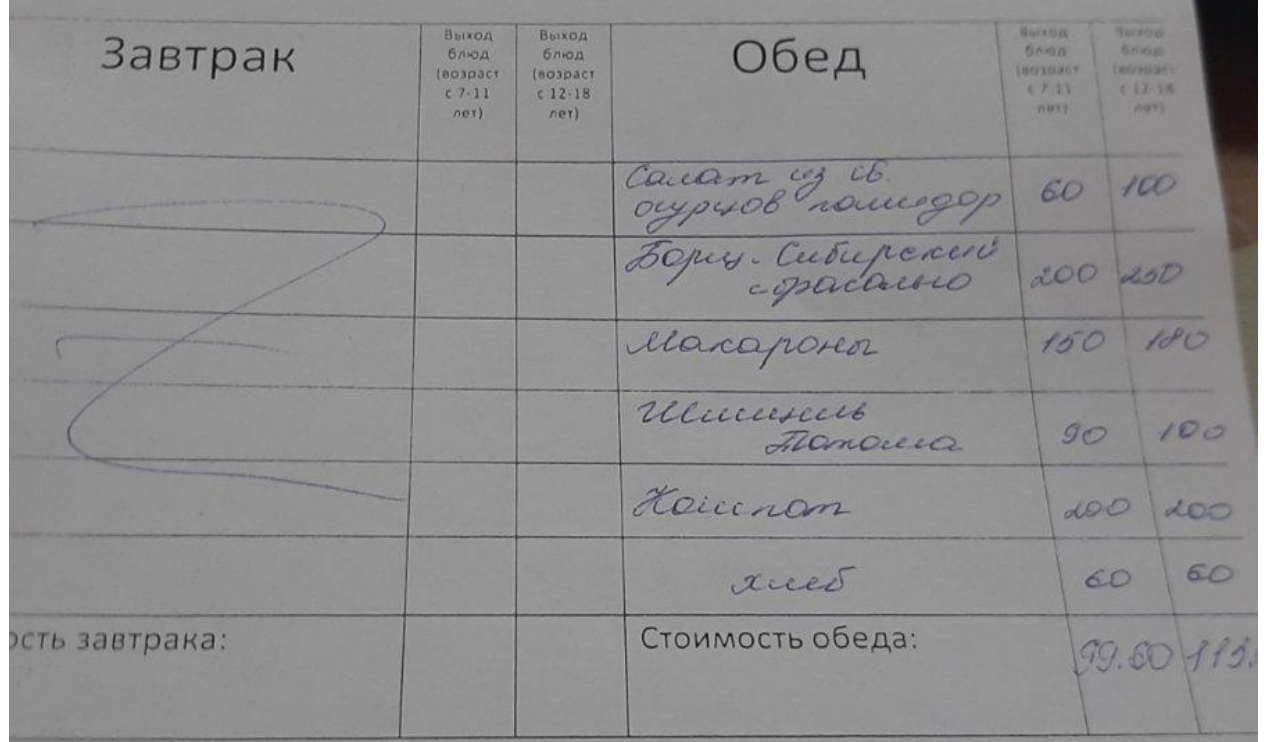 Завтрак
Выход
блюд
(возраст
с 7-11
лет)
Выход
блюд
(возраст
с 12-18
лет)
Обед
Выход
блюд
(возраст
с 7-11
лет)
Выход
блюд
(возраст
с 12-18
лет)
Салат из св.
огурцов помидор 60 100
Борщ. Сибирский
с фасолью 200 250
Макароны 150 180
Шницель
90 100
Компот 200 200
хлеб 60 60
ость завтрака:
Стоимость обеда: 99.60 113.